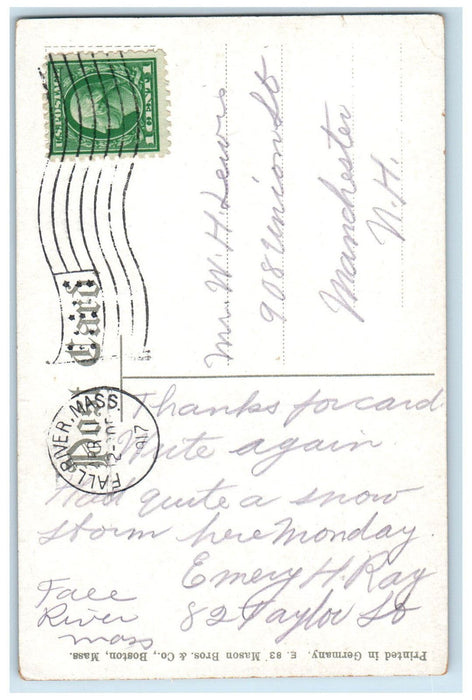 U.S. POSTAGE
1 CENT 1
Post Card
FALL RIVER, MASS.
1917
Mrs. W. H. Lewis
908 Union St
Manchester
N. H.
Thanks for card
Write again
Had quite a snow
storm here Monday.
Emery H. Ray
82 Taylor St
Fall
River
Mass
Printed in Germany. E. 83 Mason Bros. & Co., Boston, Mass.